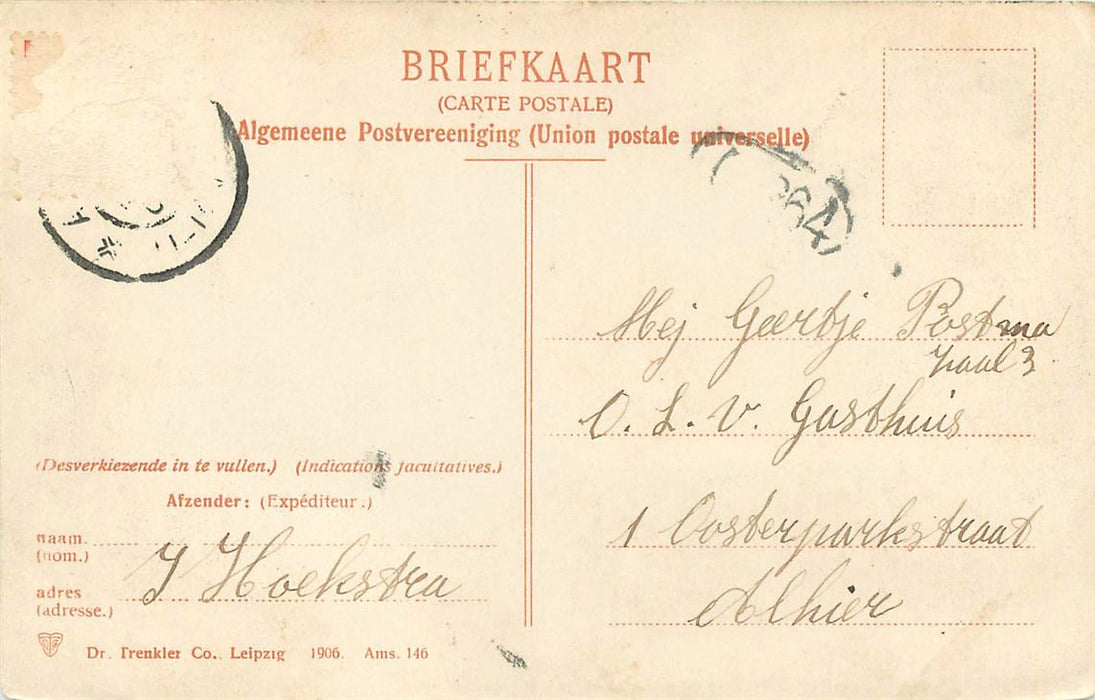 BRIEFKAART
(CARTE POSTALE)
Algemeene Postvereeniging (Union postale universelle)
Mej Geertje Postma
zaal 3
O. L. V. Gasthuis
1 Oosterparkstraat
Alhier
(Desverkiezende in te vullen.) (Indications facultatives.)
Afzender: (Expéditeur.)
naam.
(nom.)
J Hoekstra
adres
(adresse.)
Dr. Trenkler Co., Leipzig 1906. Ams. 146